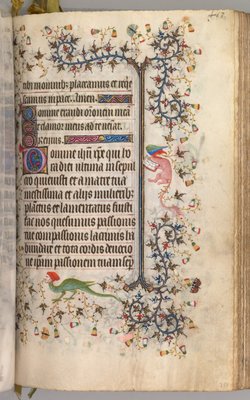 tibi moribus placeamus et reqe
scamus in pace. Amen.
Domine exaudi oronem mea
Et clamor meus ad te veniat.
Oremus.
Domine ihu xpe qui ho
ra diei ultima in sepul
cro quieuisti et a matre tua
mestissima et aliis mulierib
planctus et lamentatus fuisti
fac nos quesumus passionis
tue compassionis lacrimis ha
bundare et tota cordis deuocio
ne ipam passionem tuam